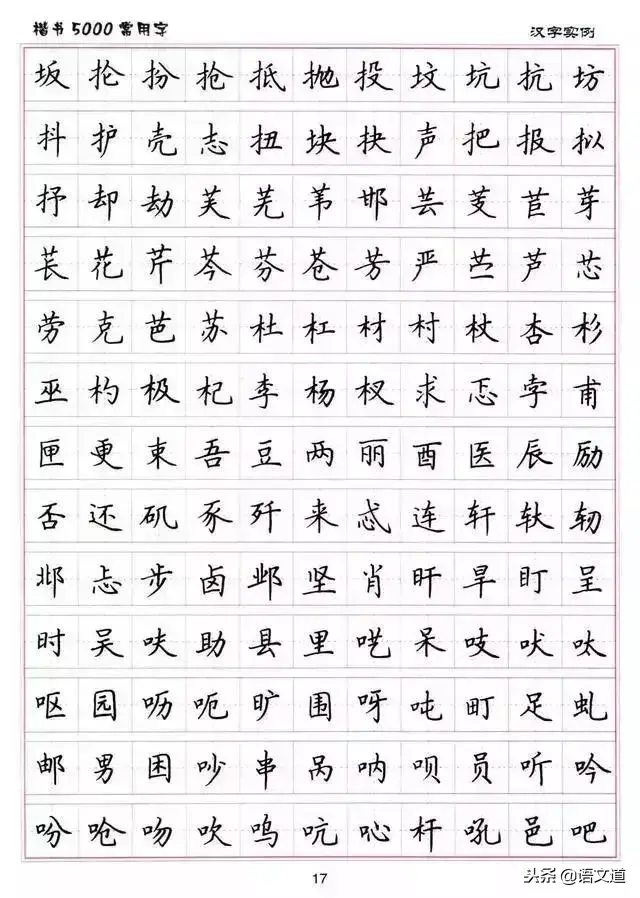 楷书5000常用字 汉字实例
坂抡扮抢抵抛投坟坑抗坊
抖护壳志扭块抉声把报拟
抒却劫芙芜苇邯芸芰苣芽
苌花芹芩芬苍芳严苎芦芯
劳克芭苏杜杠材村杖杏杉
巫杓极杞李杨杈求忑孛甫
匣更束吾豆两丽酉医辰励
否还矶豕歼来忒连轩轪轫
邶忐步卤邺坚肖旰旱盯呈
时吴呋助县里呓呆吱吠呔
呕园呖呃旷围呀吨町足虬
邮男困吵串呙呐呗员听吟
吩呛吻吹呜吭吣杆吼邑吧
17
头条@语文道